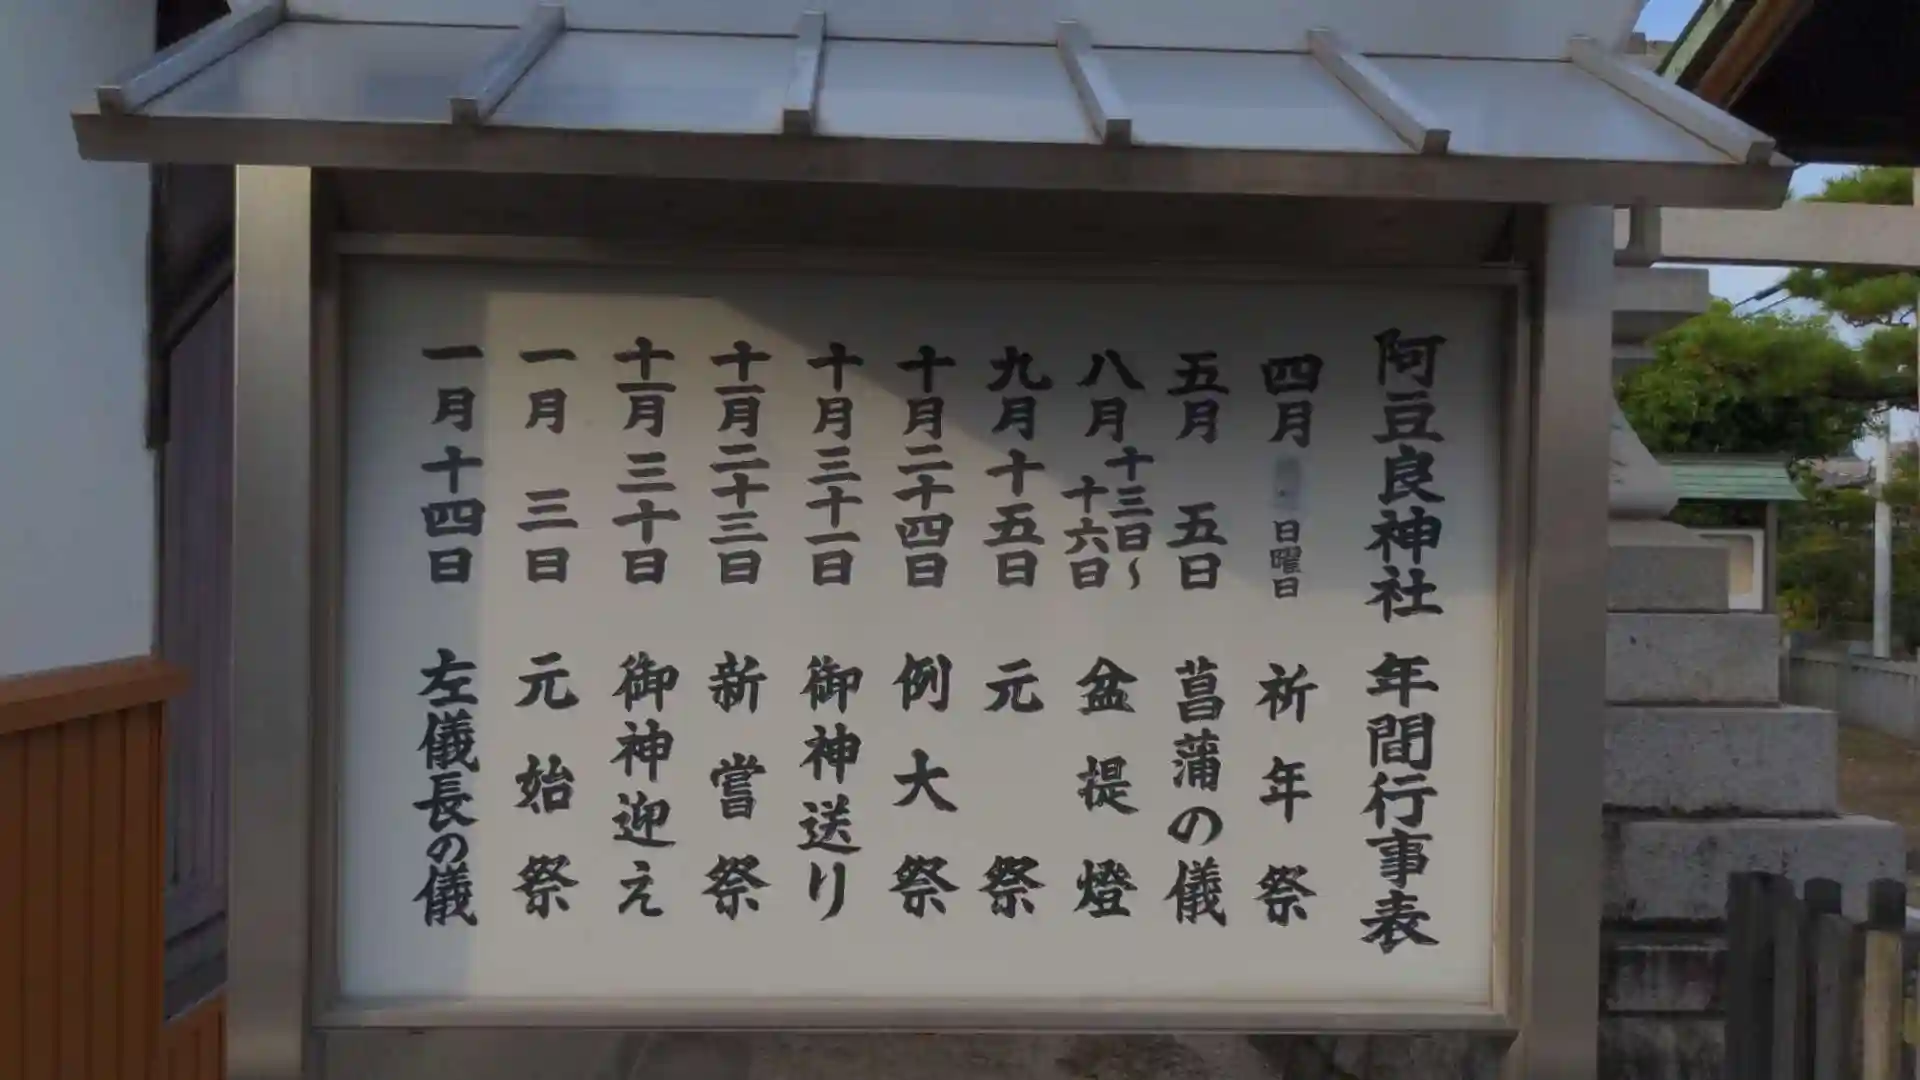 阿豆良神社 年間行事表
四月 日曜日 祈年祭
五月 五日 菖蒲の儀
八月十三日〜十六日 盆提燈
九月十五日 元祭
十月二十四日 例大祭
十月三十一日 御神送り
十一月二十三日 新嘗祭
十一月三十日 御神迎え
一月 三日 元始祭
一月十四日 左儀長の儀